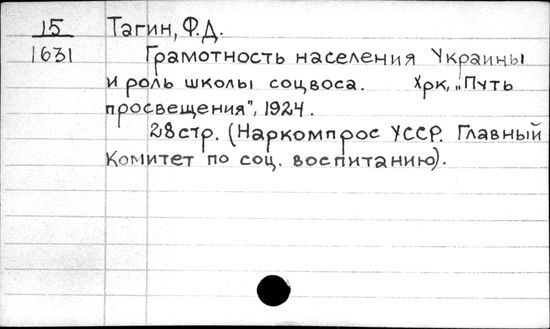 15 Тагин, Ф.Д.
1631 Грамотность населения Украины
и роль школы соцвоса. Хрк, „Путь
просвещения", 1924.
28 стр. (Наркомпрос УССР. Главный
Комитет по соц. воспитанию).